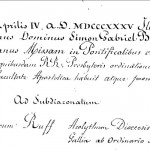 Aprilis IV. a. D. MDCCXXXV
nus Dominus Simon Gabriel B
anus Missam in Pontificalibus c
quibusdam RR. Presbyteris ordination
Facultate Apostolica habuit atque
Ad Subdiaconatum
num: Ruff Acolythum Diocesis
ab Ordinario